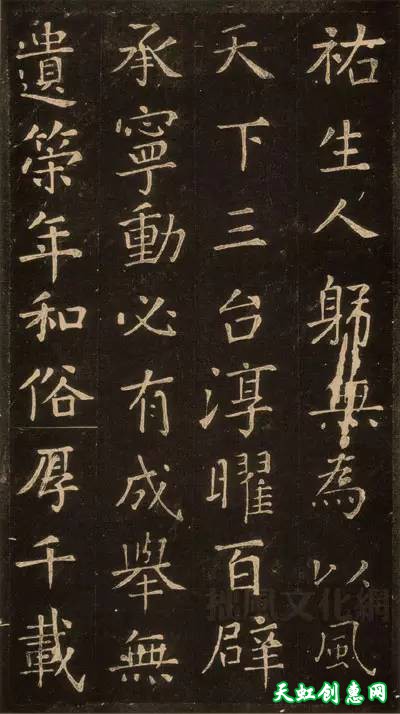 祐生人躬無為以風
天下三台淳曜百辟
承寧動必有成舉無
遺策年和俗厚千載
拙風文化網
天虹创惠网